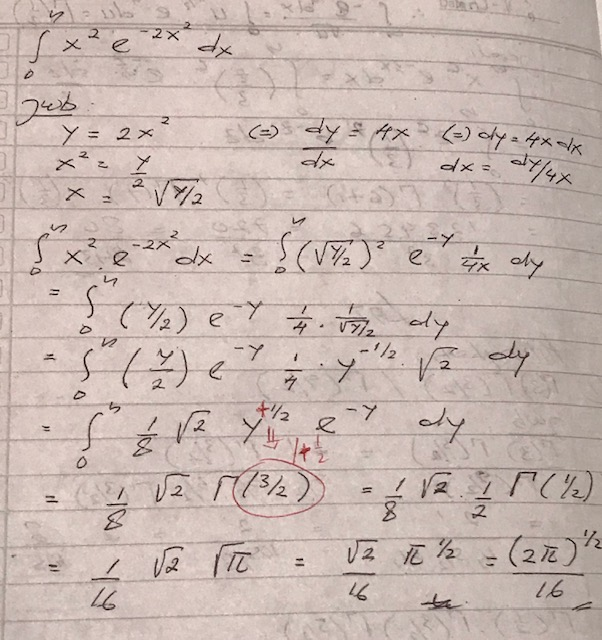 ∫₀ⁿ x² e^(-2x²) dx
Jwb:
y = 2x² (=) dy/dx = 4x (=) dy = 4x dx
x² = y/2 dx = dy/4x
x = √(y/2)
∫₀ⁿ x² . e^(-2x²) dx = ∫₀ⁿ (√(y/2))² e^(-y) 1/4x dy
= ∫₀ⁿ (y/2) e^(-y) 1/4 . 1/√(y/2) dy
= ∫₀ⁿ (y/2) e^(-y) 1/4 . y^(-1/2) . √2 dy
= ∫₀ⁿ 1/8 √2 y^(+1/2) e^(-y) dy
⇓ 1+1/2
= 1/8 √2 Γ(3/2) = 1/8 √2 . 1/2 Γ(1/2)
= 1/16 √2 √π = √2/16 π^(1/2) = (2π)^(1/2)/16